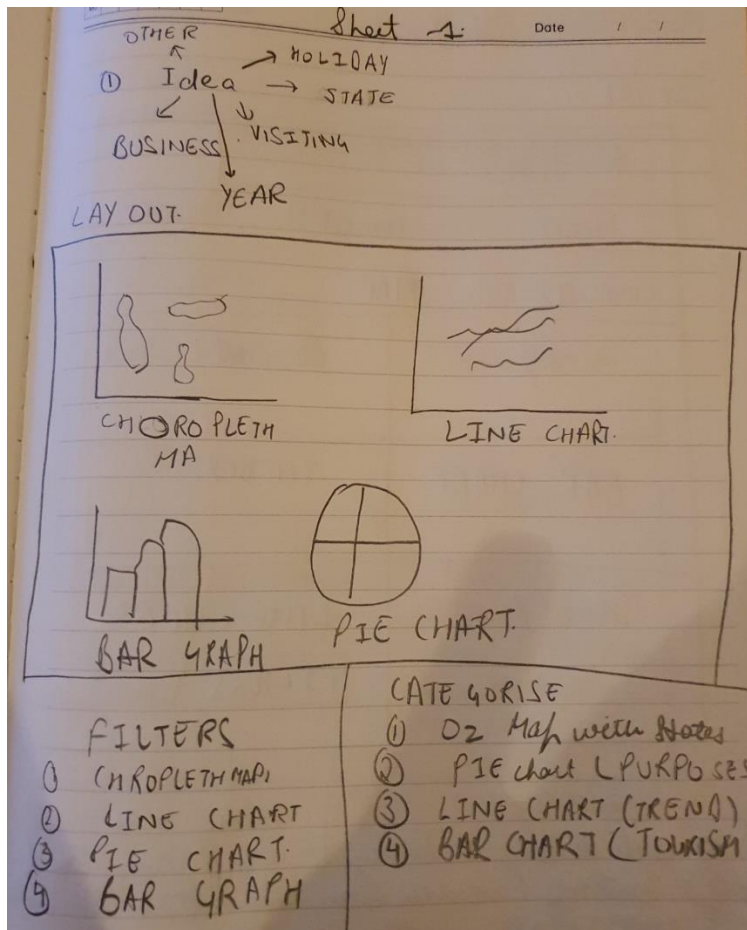 Sheet 1:
Date / /
OTHER
HOLIDAY
① Idea
STATE
BUSINESS
VISITING
YEAR
LAY OUT.
CHOROPLETH
MA
LINE CHART.
BAR GRAPH
PIE CHART.
FILTERS
① CHROPLETH MAP
② LINE CHART
③ PIE CHART.
④ BAR GRAPH
CATEGORISE
① OZ Map with States
② PIE chart (PURPOSES
③ LINE CHART (TREND)
④ BAR CHART (TOURISM